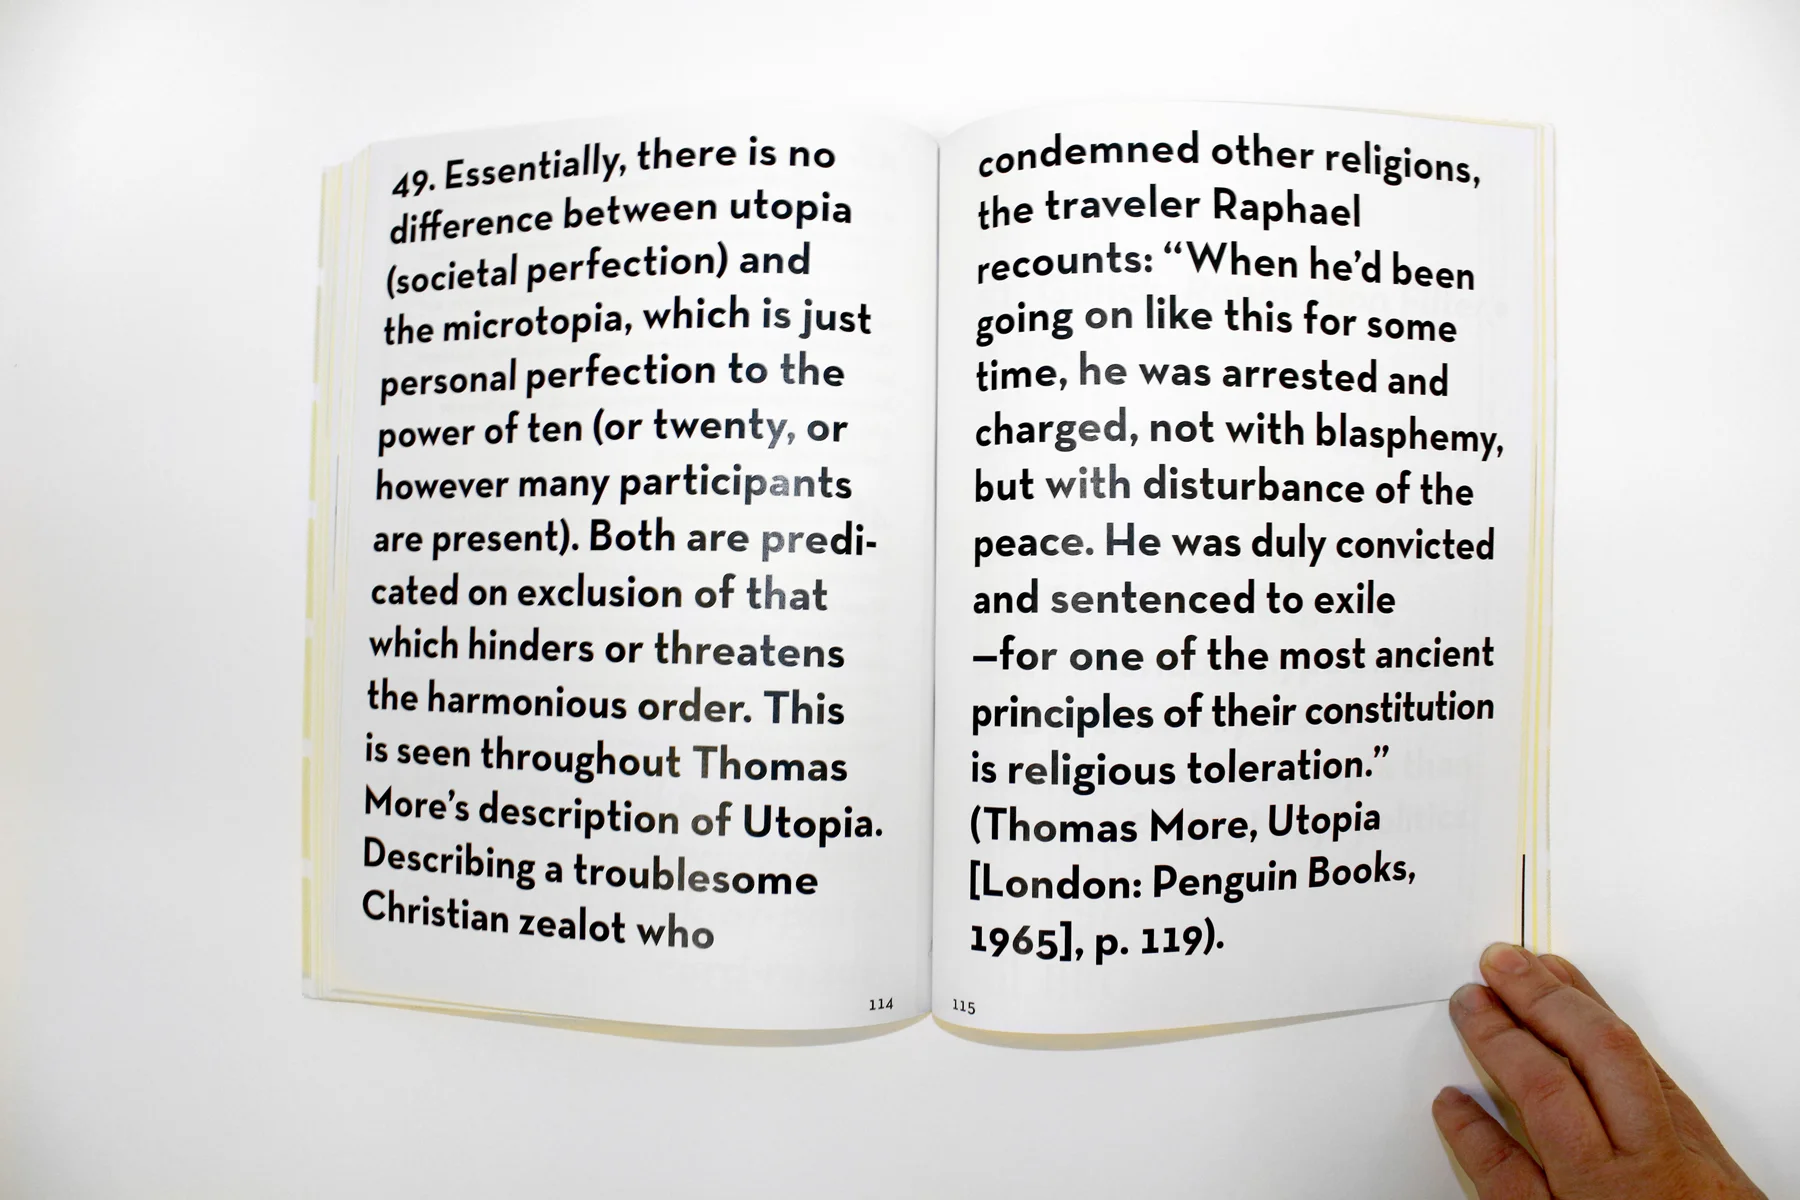 49. Essentially, there is no
difference between utopia
(societal perfection) and
the microtopia, which is just
personal perfection to the
power of ten (or twenty, or
however many participants
are present). Both are predi-
cated on exclusion of that
which hinders or threatens
the harmonious order. This
is seen throughout Thomas
More's description of Utopia.
Describing a troublesome
Christian zealot who
114
condemned other religions,
the traveler Raphael
recounts: “When he'd been
going on like this for some
time, he was arrested and
charged, not with blasphemy,
but with disturbance of the
peace. He was duly convicted
and sentenced to exile
—for one of the most ancient
principles of their constitution
is religious toleration.”
(Thomas More, Utopia
[London: Penguin Books,
1965], p. 119).
115